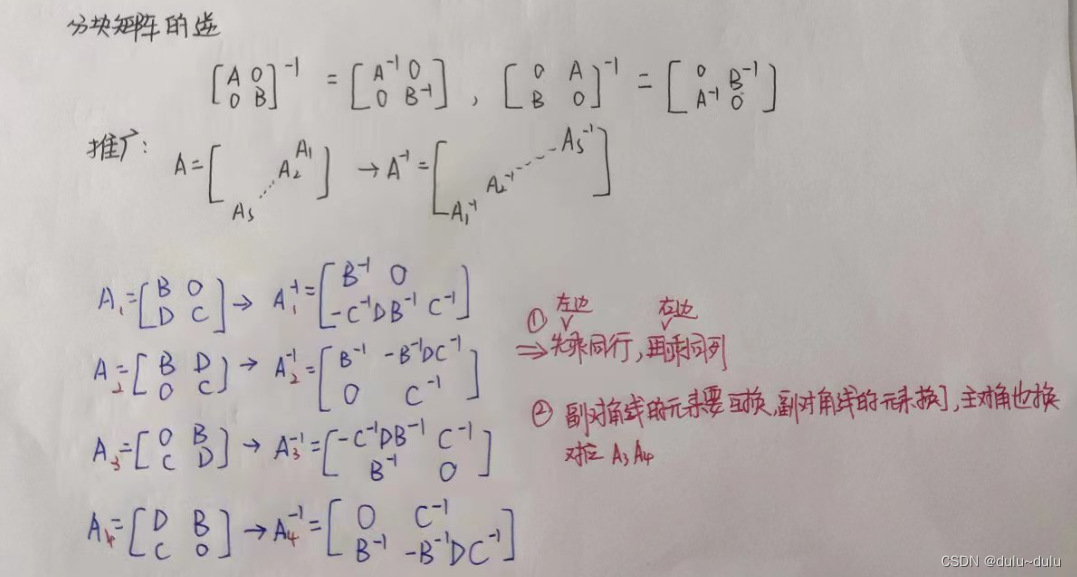 分块矩阵的逆
[A O; O B]⁻¹ = [A⁻¹ O; O B⁻¹], [O A; B O]⁻¹ = [O B⁻¹; A⁻¹ O]
推广: A=[A₁ A₂ ⋯ Aₛ] → A⁻¹=[Aₛ⁻¹ ⋯ A₂⁻¹ A₁⁻¹]
A₁=[B O; D C] → A₁⁻¹=[B⁻¹ O; -C⁻¹DB⁻¹ C⁻¹]
A₂=[B D; O C] → A₂⁻¹=[B⁻¹ -B⁻¹DC⁻¹; O C⁻¹]
A₃=[O B; C D] → A₃⁻¹=[-C⁻¹DB⁻¹ C⁻¹; B⁻¹ O]
A₄=[D B; C O] → A₄⁻¹=[O C⁻¹; B⁻¹ -B⁻¹DC⁻¹]
① 左边 右边
⇒ 先乘同行,再乘同列
② 副对角线的元素要互换,副对角线的元素换了,主对角也换
对应 A₃A₄
CSDN @dulu~dulu